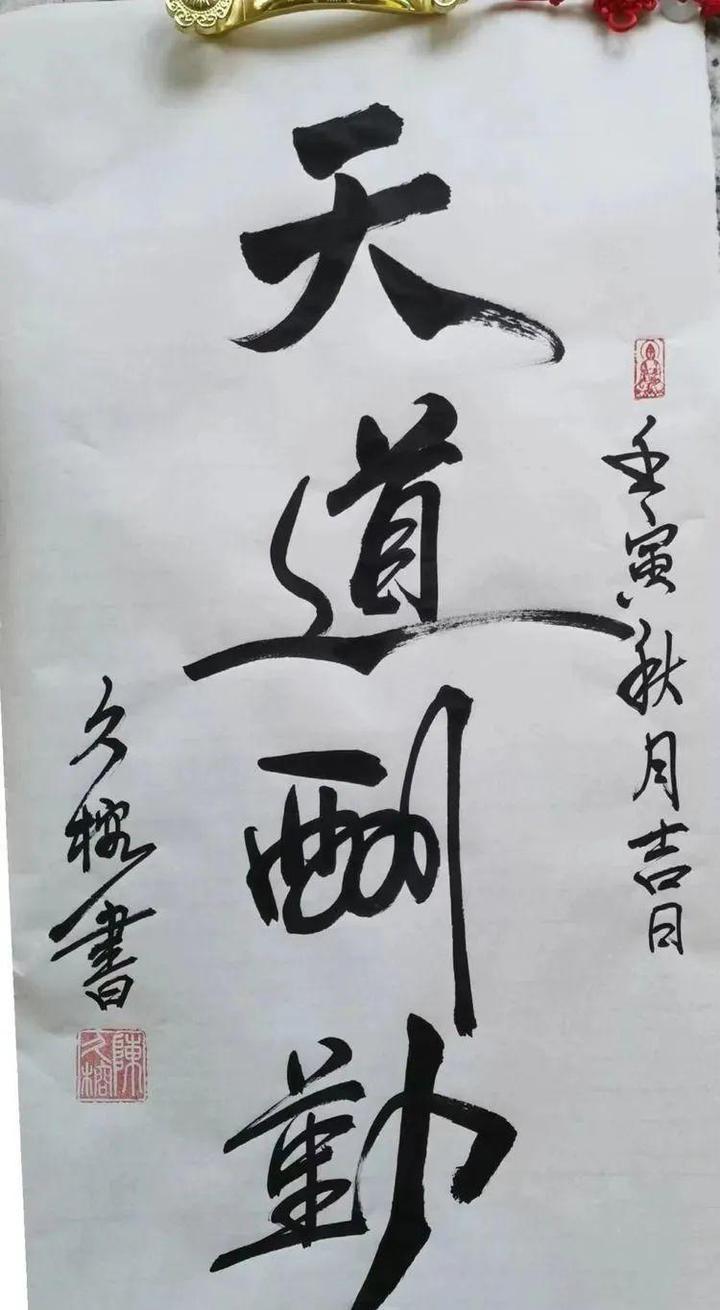 壬寅秋月吉日
天道酬勤
久榕書
陳久榕